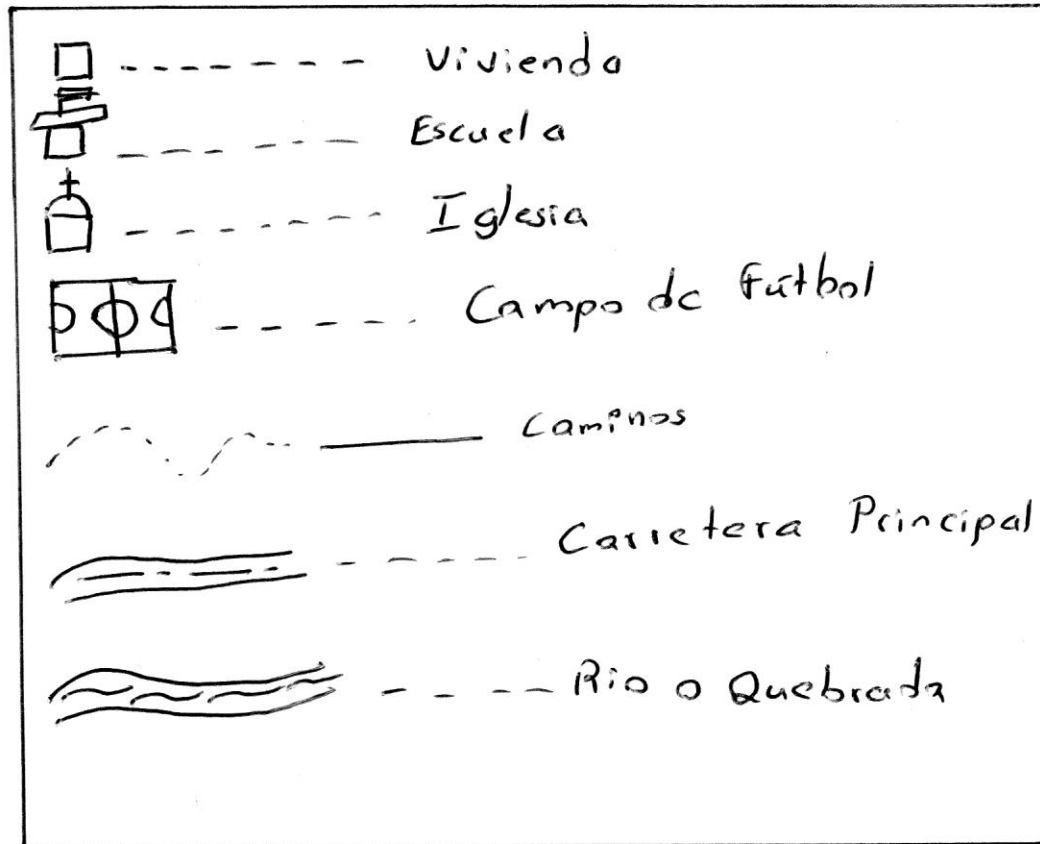 Vivienda
Escuela
Iglesia
Campo de Fútbol
Caminos
Carretera Principal
Rio o Quebrada